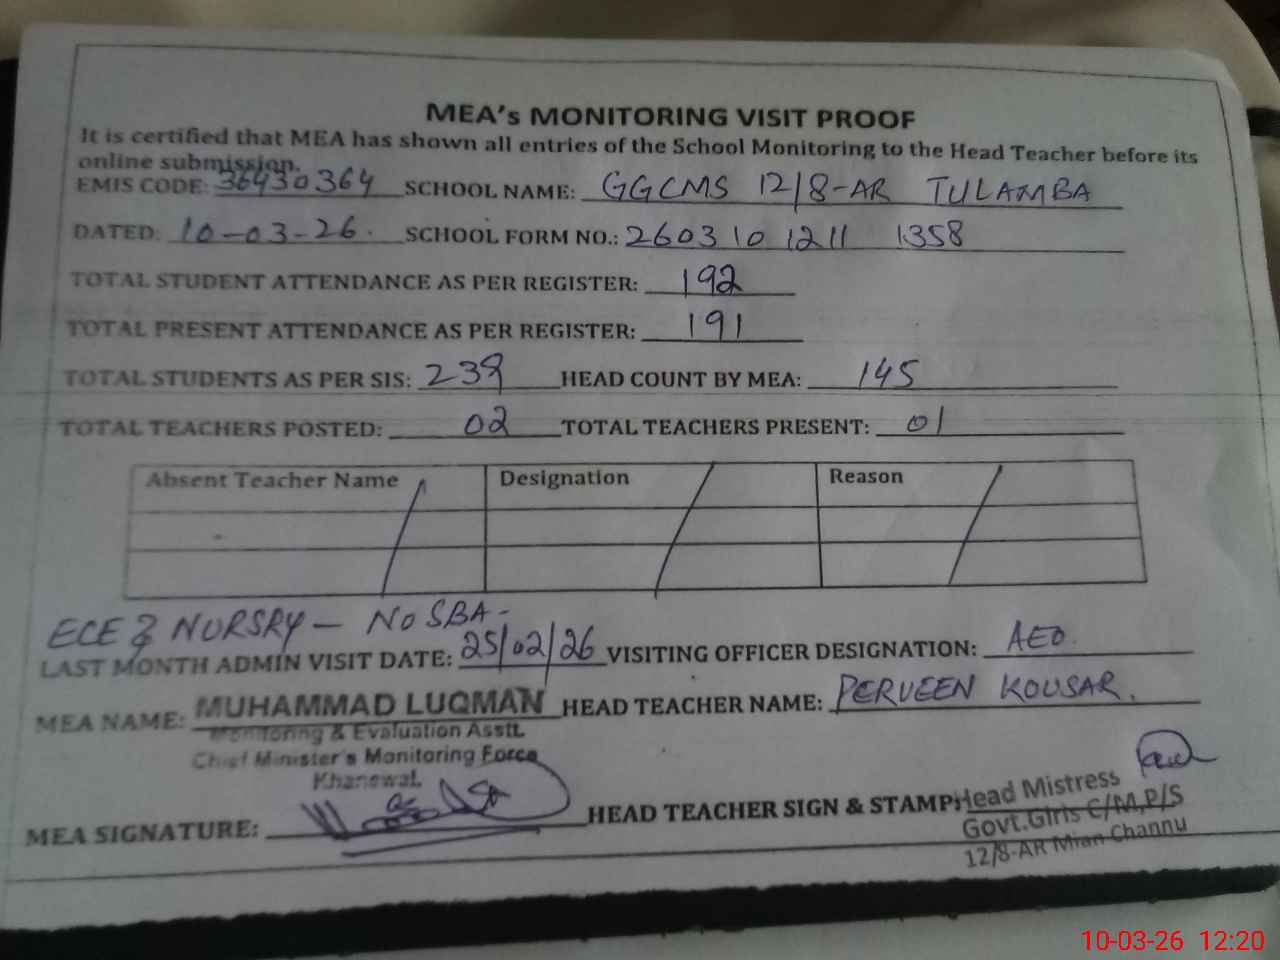 MEA's MONITORING VISIT PROOF
It is certified that MEA has shown all entries of the School Monitoring to the Head Teacher before its
online submission.
EMIS CODE: 36430364 SCHOOL NAME: GGCMS 12/8-AR TULAMBA
DATED: 10-03-26. SCHOOL FORM NO.: 2603101211 1358
TOTAL STUDENT ATTENDANCE AS PER REGISTER: 192
TOTAL PRESENT ATTENDANCE AS PER REGISTER: 191
TOTAL STUDENTS AS PER SIS: 239 HEAD COUNT BY MEA: 145
TOTAL TEACHERS POSTED: 02 TOTAL TEACHERS PRESENT: 01
Absent Teacher Name Designation Reason
ECE & NURSRY - NO SBA -
LAST MONTH ADMIN VISIT DATE: 25/02/26 VISITING OFFICER DESIGNATION: AEO.
MEA NAME: MUHAMMAD LUQMAN HEAD TEACHER NAME: PERVEEN KOUSAR.
Monitoring & Evaluation Asstt.
Chief Minister's Monitoring Force
Khanewal.
MEA SIGNATURE: HEAD TEACHER SIGN & STAMP: Head Mistress
Govt.Girls C/M,P/S
12/8-AR Mian Channu
10-03-26 12:20